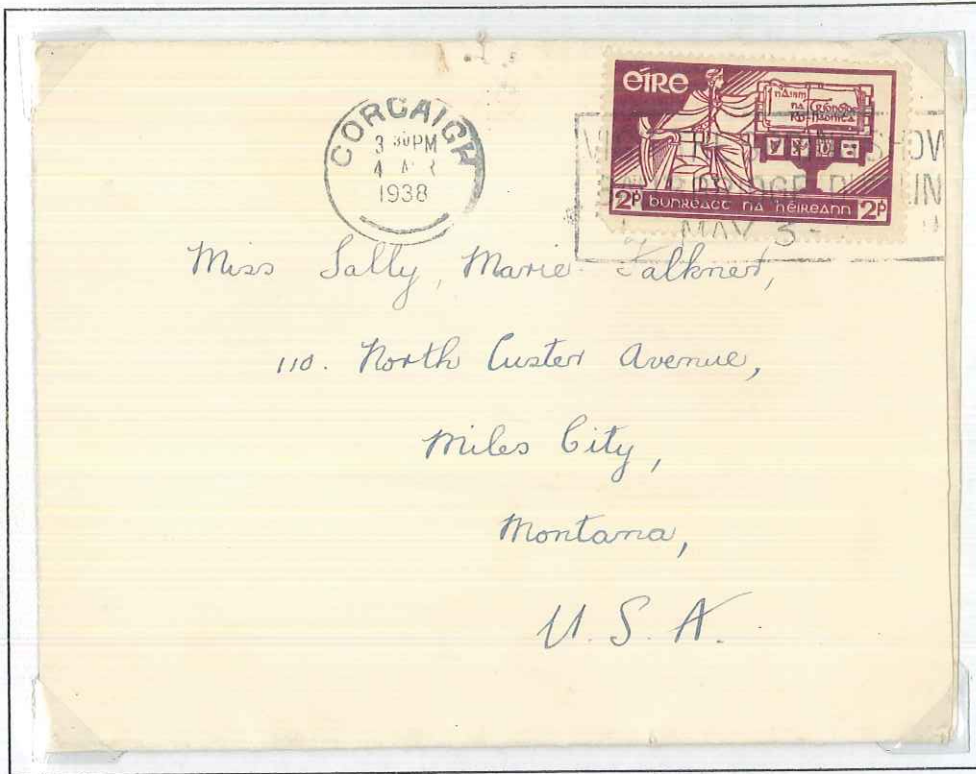 CORCAIGH
3 30PM
4 APR
1938
éire
i nainm
na Tríonóide
Ró-naomhtha
2p bunreact na héireann 2p
SHOW
MAY 3-
Miss Sally, Marie Falkner,
110. North Custer Avenue,
Miles City,
Montana,
U.S.A.